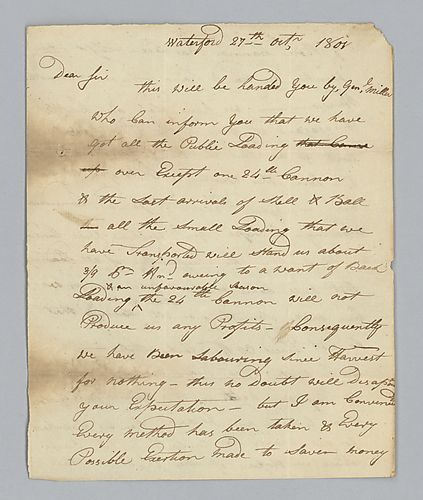 Waterford 27th Octr, 1801
Dear Sir
this will be handed You by, Gen.l Miller
Who Can inform You that we have
got all the Public Loading that Came
up over Except one 24th Cannon
& the Last arrivals of Shell & Ball
all the Small Loading that we
have Transported will stand us about
3/9 owing to a want of Back
& an unfavourable Season
Loading, the 24th Cannon will not
Produce us any Profits — Consequently
we have Been Labouring since Harvest
for nothing — this no Doubt will Disapt
your Expectation — but I am Convinced
Every method has been taken & Every
Possible Exertion made to Saver money